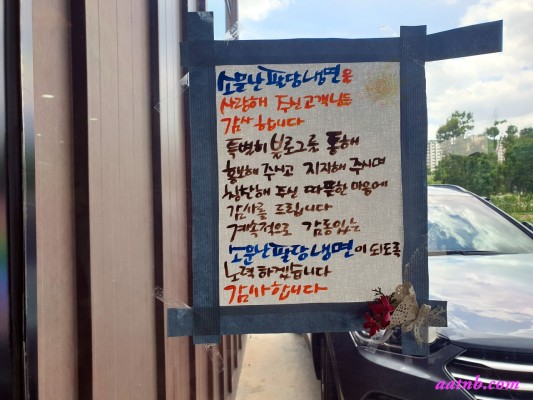 소문난 팔당냉면을
사랑해 주신 고객님들
감사합니다
특별히 블로그를 통해
홍보해 주시고 지지해 주시며
칭찬해 주신 따뜻한 마음에
감사를 드립니다
계속적으로 감동있는
소문난팔당냉면이 되도록
노력하겠습니다
감사합니다
aatnb.com